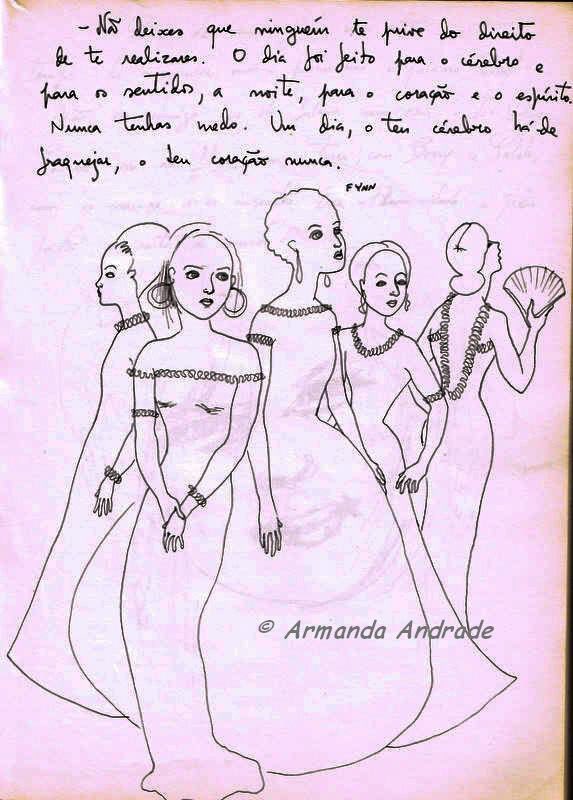 - Não deixes que ninguém te prive do direito
de te realizares. O dia foi feito para o cérebro e
para os sentidos, a noite, para o coração e o espírito.
Nunca tenhas medo. Um dia, o teu cérebro há-de
fraquejar, o teu coração nunca.
FYNN
© Armanda Andrade